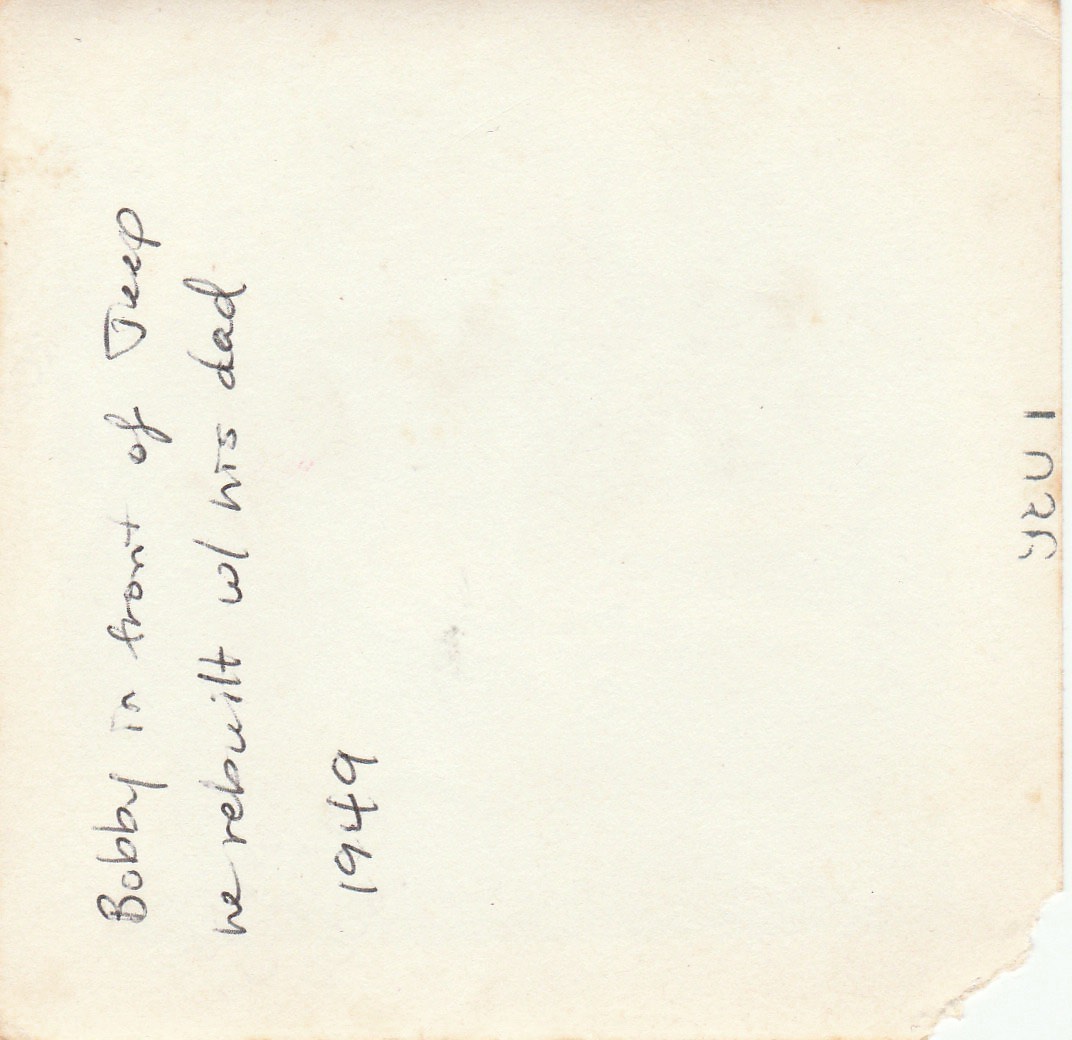 Bobby in front of Jeep
he rebuilt w/ his dad
1949